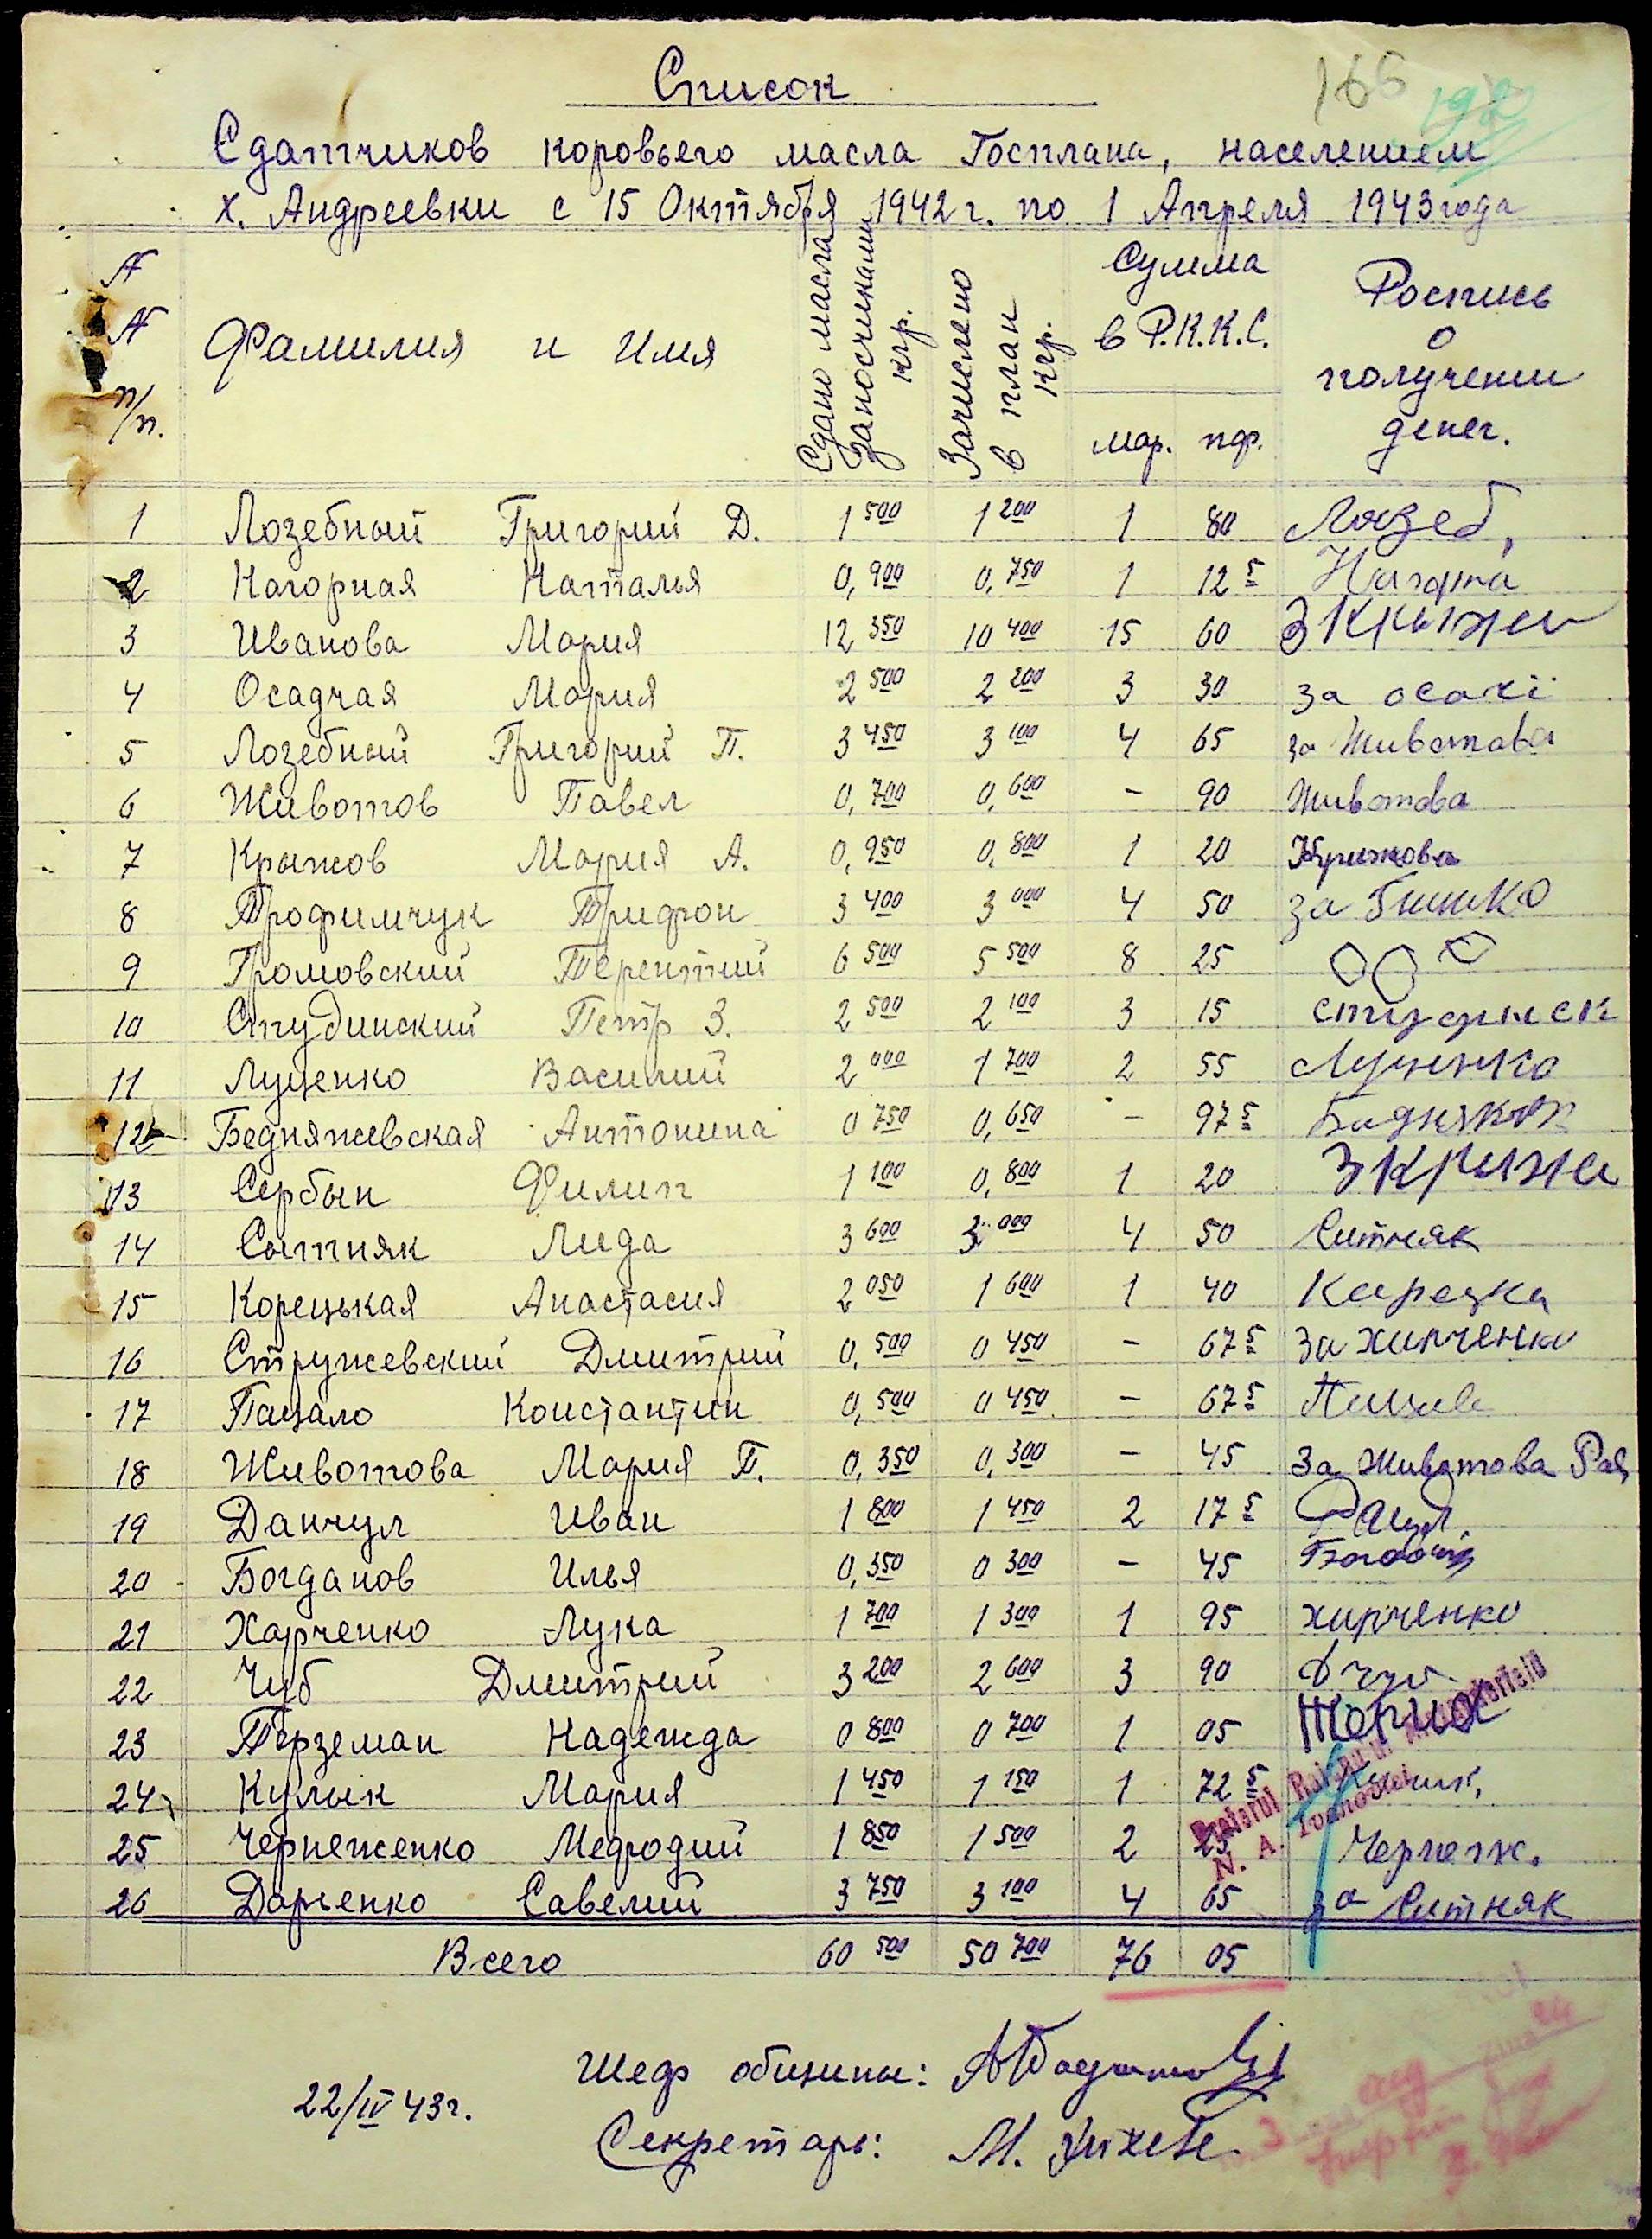 166
192
Список
Сдатчиков коровьего масла Госплана, населением
х. Андреевки с 15 Октября 1942 г. по 1 Апреля 1943 года
N N п/п. Фамилия и Имя Сдано масла заносчиками кгр. Зачислено в план кгр. Сумма в Р.К.К.С. мар. пф. Роспись о получении денег.
1 Лозебный Григорий Д. 1 500 1 200 1 80 Лозеб,
2 Нагорная Наталья 0, 900 0, 750 1 12 5 Нагорна
3 Иванова Мария 12 350 10 400 15 60 З Крыжи
4 Осадчая Мария 2 500 2 200 3 30 за
5 Лозебный Григорий П. 3 450 3 100 4 65 за Животова
6 Животов Павел 0, 700 0, 600 – 90 Животова
7 Крыжов Мария А. 0, 950 0, 800 1 20 Крижова
8 Трофимчук Трифон 3 400 3 000 4 50 за
9 Громовский Терентий 6 500 5 500 8 25
10 Студинский Петр З. 2 500 2 100 3 15
11 Луценко Василий 2 000 1 700 2 55
12 Бедняжевская Антонина 0 750 0, 650 – 97 5
13 Сербын Филип 1 100 0, 800 1 20
14 Сытняк Лида 3 600 3 000 4 50 Ситняк
15 Корецькая Анастасия 2 050 1 600 1 40 Карецка
16 Стружевский Дмитрий 0, 500 0 450 – 67 5 За харченко
17 Пацало Константин 0, 500 0 450 – 67 5
18 Животова Мария П. 0, 350 0, 300 – 45 За Животова Рая
19 Данчул Иван 1 800 1 450 2 17 5
20 Богданов Илья 0, 350 0 300 – 45
21 Харченко Лука 1 700 1 300 1 95 харченко
22 Чуб Дмитрий 3 200 2 600 3 90
23 Терземан Надежда 0 800 0 700 1 05
24 Кулык Мария 1 450 1 150 1 72 5
25 Чернеженко Мефодий 1 850 1 500 2 25 Чернеж.
26 Дарченко Савелий 3 750 3 100 4 65 за Ситняк
Pretorul Raionului
N. A. Ivanovici
Всего 60 500 50 700 76 05
Шеф общины:
22/IV 43 г.
Секретарь: М.